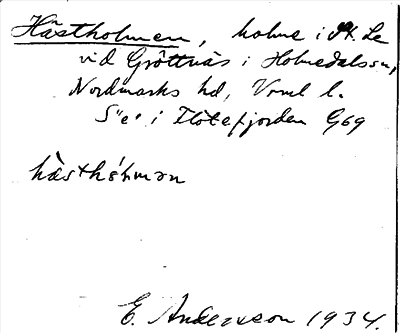 Hästholmen, holme i St. Le
vid Gröttnäs i Holmedals sn,
Nordmarks hd, Vrml l.
S"e" i Flötefjorden G69
hàsthól̀mən
E. Andersson 1934.